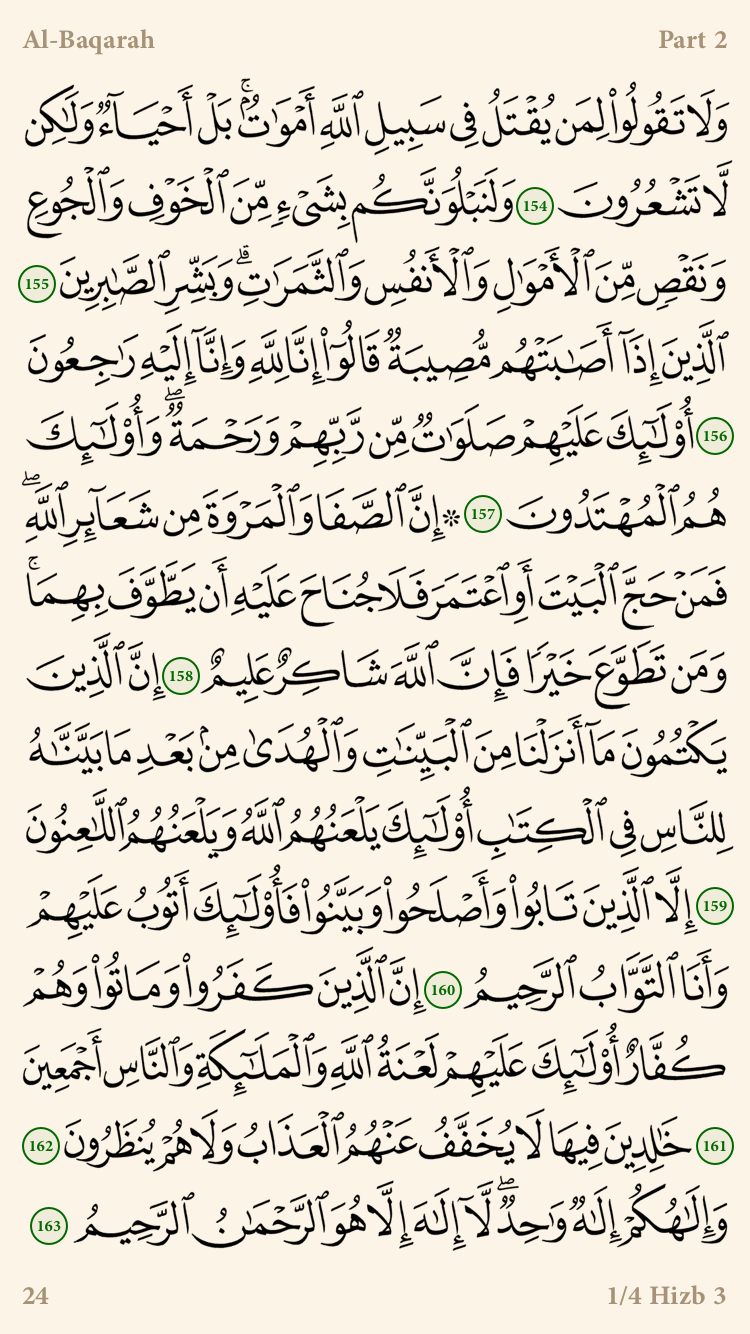 Al-Baqarah Part 2
وَلَا تَقُولُوا۟ لِمَن يُقْتَلُ فِى سَبِيلِ ٱللَّهِ أَمْوَٰتٌۢ ۚ بَلْ أَحْيَآءٌ وَلَٰكِن
لَّا تَشْعُرُونَ 154 وَلَنَبْلُوَنَّكُم بِشَىْءٍ مِّنَ ٱلْخَوْفِ وَٱلْجُوعِ
وَنَقْصٍ مِّنَ ٱلْأَمْوَٰلِ وَٱلْأَنفُسِ وَٱلثَّمَرَٰتِ ۗ وَبَشِّرِ ٱلصَّٰبِرِينَ 155
ٱلَّذِينَ إِذَآ أَصَٰبَتْهُم مُّصِيبَةٌ قَالُوٓا۟ إِنَّا لِلَّهِ وَإِنَّآ إِلَيْهِ رَٰجِعُونَ
156 أُو۟لَٰٓئِكَ عَلَيْهِمْ صَلَوَٰتٌ مِّن رَّبِّهِمْ وَرَحْمَةٌ ۖ وَأُو۟لَٰٓئِكَ
هُمُ ٱلْمُهْتَدُونَ 157 ۞ إِنَّ ٱلصَّفَا وَٱلْمَرْوَةَ مِن شَعَآئِرِ ٱللَّهِ ۖ
فَمَنْ حَجَّ ٱلْبَيْتَ أَوِ ٱعْتَمَرَ فَلَا جُنَاحَ عَلَيْهِ أَن يَطَّوَّفَ بِهِمَا ۚ
وَمَن تَطَوَّعَ خَيْرًا فَإِنَّ ٱللَّهَ شَاكِرٌ عَلِيمٌ 158 إِنَّ ٱلَّذِينَ
يَكْتُمُونَ مَآ أَنزَلْنَا مِنَ ٱلْبَيِّنَٰتِ وَٱلْهُدَىٰ مِنۢ بَعْدِ مَا بَيَّنَّٰهُ
لِلنَّاسِ فِى ٱلْكِتَٰبِ أُو۟لَٰٓئِكَ يَلْعَنُهُمُ ٱللَّهُ وَيَلْعَنُهُمُ ٱللَّٰعِنُونَ
159 إِلَّا ٱلَّذِينَ تَابُوا۟ وَأَصْلَحُوا۟ وَبَيَّنُوا۟ فَأُو۟لَٰٓئِكَ أَتُوبُ عَلَيْهِمْ
وَأَنَا ٱلتَّوَّابُ ٱلرَّحِيمُ 160 إِنَّ ٱلَّذِينَ كَفَرُوا۟ وَمَاتُوا۟ وَهُمْ
كُفَّارٌ أُو۟لَٰٓئِكَ عَلَيْهِمْ لَعْنَةُ ٱللَّهِ وَٱلْمَلَٰٓئِكَةِ وَٱلنَّاسِ أَجْمَعِينَ
161 خَٰلِدِينَ فِيهَا لَا يُخَفَّفُ عَنْهُمُ ٱلْعَذَابُ وَلَا هُمْ يُنظَرُونَ 162
وَإِلَٰهُكُمْ إِلَٰهٌ وَٰحِدٌ ۖ لَّآ إِلَٰهَ إِلَّا هُوَ ٱلرَّحْمَٰنُ ٱلرَّحِيمُ 163
24 1/4 Hizb 3